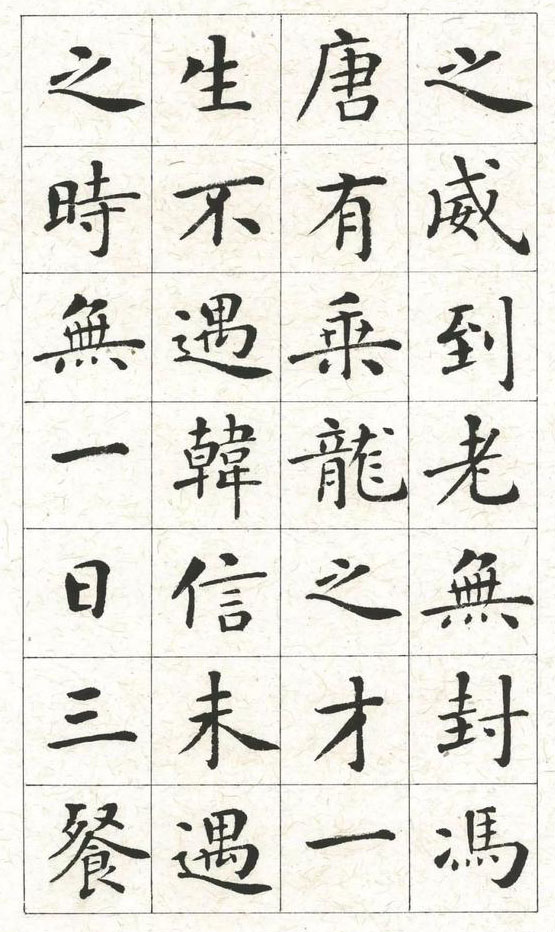 之威到老無封馮
唐有乘龍之才一
生不遇韓信未遇
之時無一日三餐